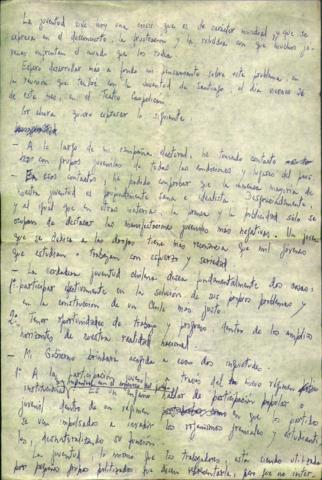 La juventud vive hoy una crisis que es de carácter mundial y que se
expresa en el descontento, la frustración y la rebeldía con que muchos jó-
venes enfrentan el mundo que los rodea.
Espero desarrollar más a fondo mi pensamiento sobre este problema, en
la reunión que tendré con la juventud de Santiago, el día viernes 30
de este mes, en el Teatro Caupolicán.
Por ahora quiero expresar lo siguiente:
- A lo largo de mi campaña electoral, he tomado contacto
con grupos juveniles de todas las condiciones y lugares del país.
- En esos contactos he podido comprobar que la inmensa mayoría de
nuestra juventud es profundamente sana e idealista. Desgraciadamente
y al igual que en otras materias, la prensa y la publicidad solo se
ocupan de destacar las manifestaciones juveniles más negativas. Un joven
que se dedica a las drogas tiene más resonancia que mil jóvenes
que estudian o trabajan con esfuerzo y seriedad.
La verdadera juventud chilena desea fundamentalmente dos cosas:
1º participar efectivamente en la solución de sus propios problemas y
en la construcción de un Chile más justo.
2º Tener oportunidades de trabajo y progreso dentro de los amplios
horizontes de nuestra realidad nacional.
- Mi Gobierno brindará acogida a esas dos inquietudes.
1º A la participación juvenil a través del nuevo régimen
institucional. Es un engaño hablar de participación popular o
juvenil dentro de un régimen en que los partidos
se ven impulsados a invadir los organismos gremiales y estudianti-
les, desnaturalizando su función.
La juventud, lo mismo que los trabajadores, está siendo utilizada
por pequeños grupos politizados que dicen representarla, pero que no inter-